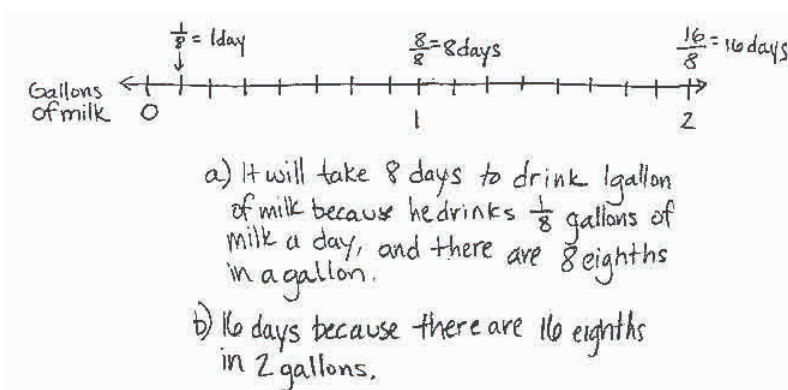 1/8 = 1day
8/8 = 8days
16/8 = 16days
Gallons
of milk
0
1
2
a) It will take 8 days to drink 1gallon
of milk because he drinks 1/8 gallons of
milk a day, and there are 8 eighths
in a gallon.
b) 16 days because there are 16 eighths
in 2 gallons.